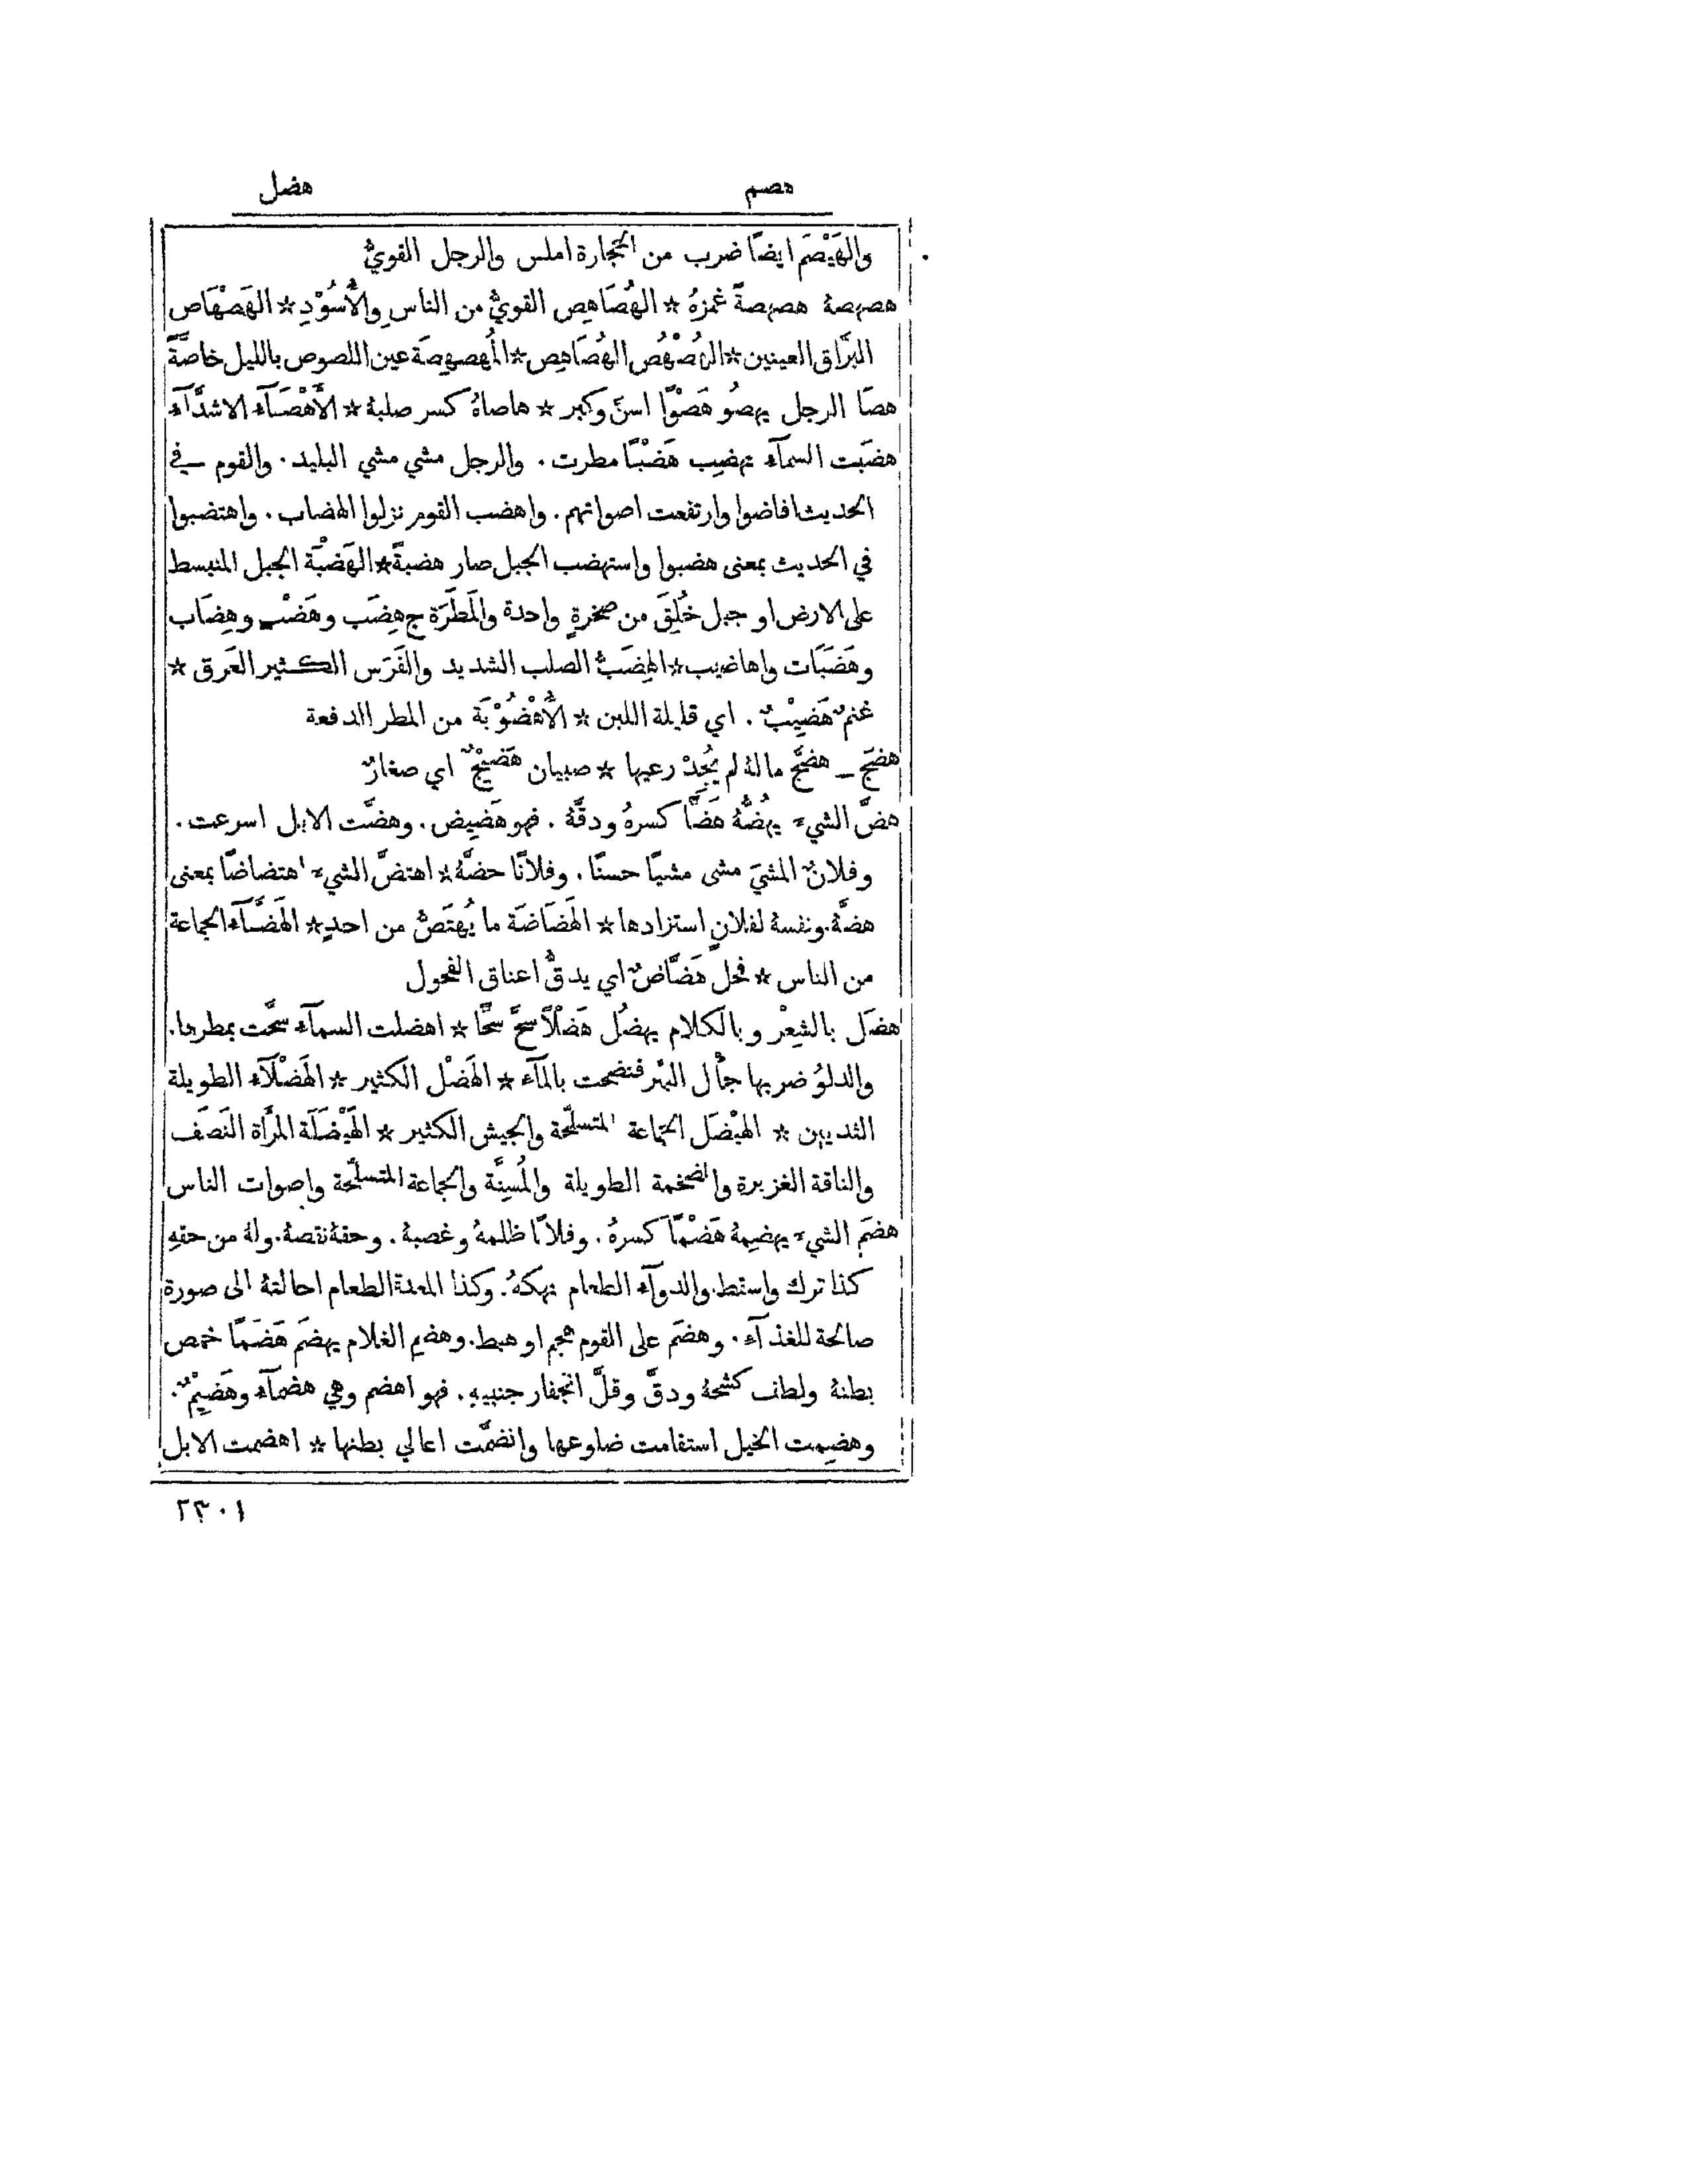 هصم هضل
والهَيْصَم ايضًا ضرب من الحجارة املس والرجل القويُّ
هصهصهُ هصهصةً غمزهُ * الهُصَاهِص القويُّ من الناس والأُسُوْدِ * الهَصْهَاص
البرَّاق العينين * الهُصْهُص الهُصَاهِص * المُهصهِصَة عين اللصوص بالليل خاصَّةً
هصَا الرجل يهصُو هَصْوًا اسنَّ وكبر * هاصاهُ كسر صلبهُ * الأَهْصَآء الاشدَّآء
هضَبَت السمآء تهضِب هَضْبًا مطرت. والرجل مشي مشي البليد. والقوم في
الحديث افاضوا وارتفعت اصواتهم. واهضب القوم نزلوا الهضاب. واهتضبوا
في الحديث بمعنى هضبوا واستهضب الجبل صار هضبةً * الهَضْبَة الجبل المنبسط
على الارض او جبل خُلِقَ من صخرةٍ واحدة والمَطَرَة ج هِضَب وهَضْب وهِضَاب
وهَضَبَات واهاضيب * الهِضَبُّ الصلب الشديد والفَرَس الكثير العَرَق *
غنمٌ هَضِيْبٌ. اي قليلة اللبن * الأُهْضُوْبَة من المطر الدفعة
هضجَ ـ هضجَّ مالهُ لم يُجِدْ رعيها * صبيان هَضِيْجٌ اي صغارٌ
هضَّ الشيء يهُضُّهُ هَضًّا كسرهُ ودقَّهُ. فهو هَضِيض. وهضَّت الابل اسرعت.
وفلانٌ المشيَ مشى مشيًا حسنًا. وفلانًا حضَّهُ * اهتضَّ الشيء اهتضاضًا بمعنى
هضَّهُ. ونفسهُ لفلانٍ استزادها * الهَضَاضَة ما يُهتَضُّ من احدٍ * الهَضَّآء الجماعة
من الناس * فحل هَضَّاضٌ اي يدقُّ اعناق الفحول
هضَل بالشِعْر وبالكلام يهضُل هَضْلًا سحَّ سحًّا * اهضلت السمآء سحَّت بمطرها.
والدلوُ ضربها جأْل البئر فنضحت بالمآء * الهَضْل الكثير * الهَضْلَآء الطويلة
الثديين * الهَيْضَل الجماعة المتسلّحة والجيش الكثير * الهَيْضَلَة المرأَة النَصَف
والناقة الغزيرة والضخمة الطويلة والمُسِنَّة والجماعة المتسلّحة واصوات الناس
هضَم الشيء يهضِمهُ هَضْمًا كسرهُ. وفلانًا ظلمهُ وغصبهُ. وحقَّهُ نقصهُ. ولهُ من حقهِ
كذا ترك واسقط. والدوآء الطعام نهكهُ. وكذا المعدة الطعام احالتهُ الى صورة
صالحة للغذآء. وهضَم على القوم هجم او هبط. وهضِم الغلام يهضَم هَضَمًا خمص
بطنهُ ولطف كشحهُ ودقَّ وقلَّ انجفار جنبيهِ. فهو اهضم وهي هضمآء وهَضِيْمٌ.
وهضِمت الخيل استقامت ضلوعها وانضمَّت اعالي بطنها * اهضمت الابل
٢٣٠١